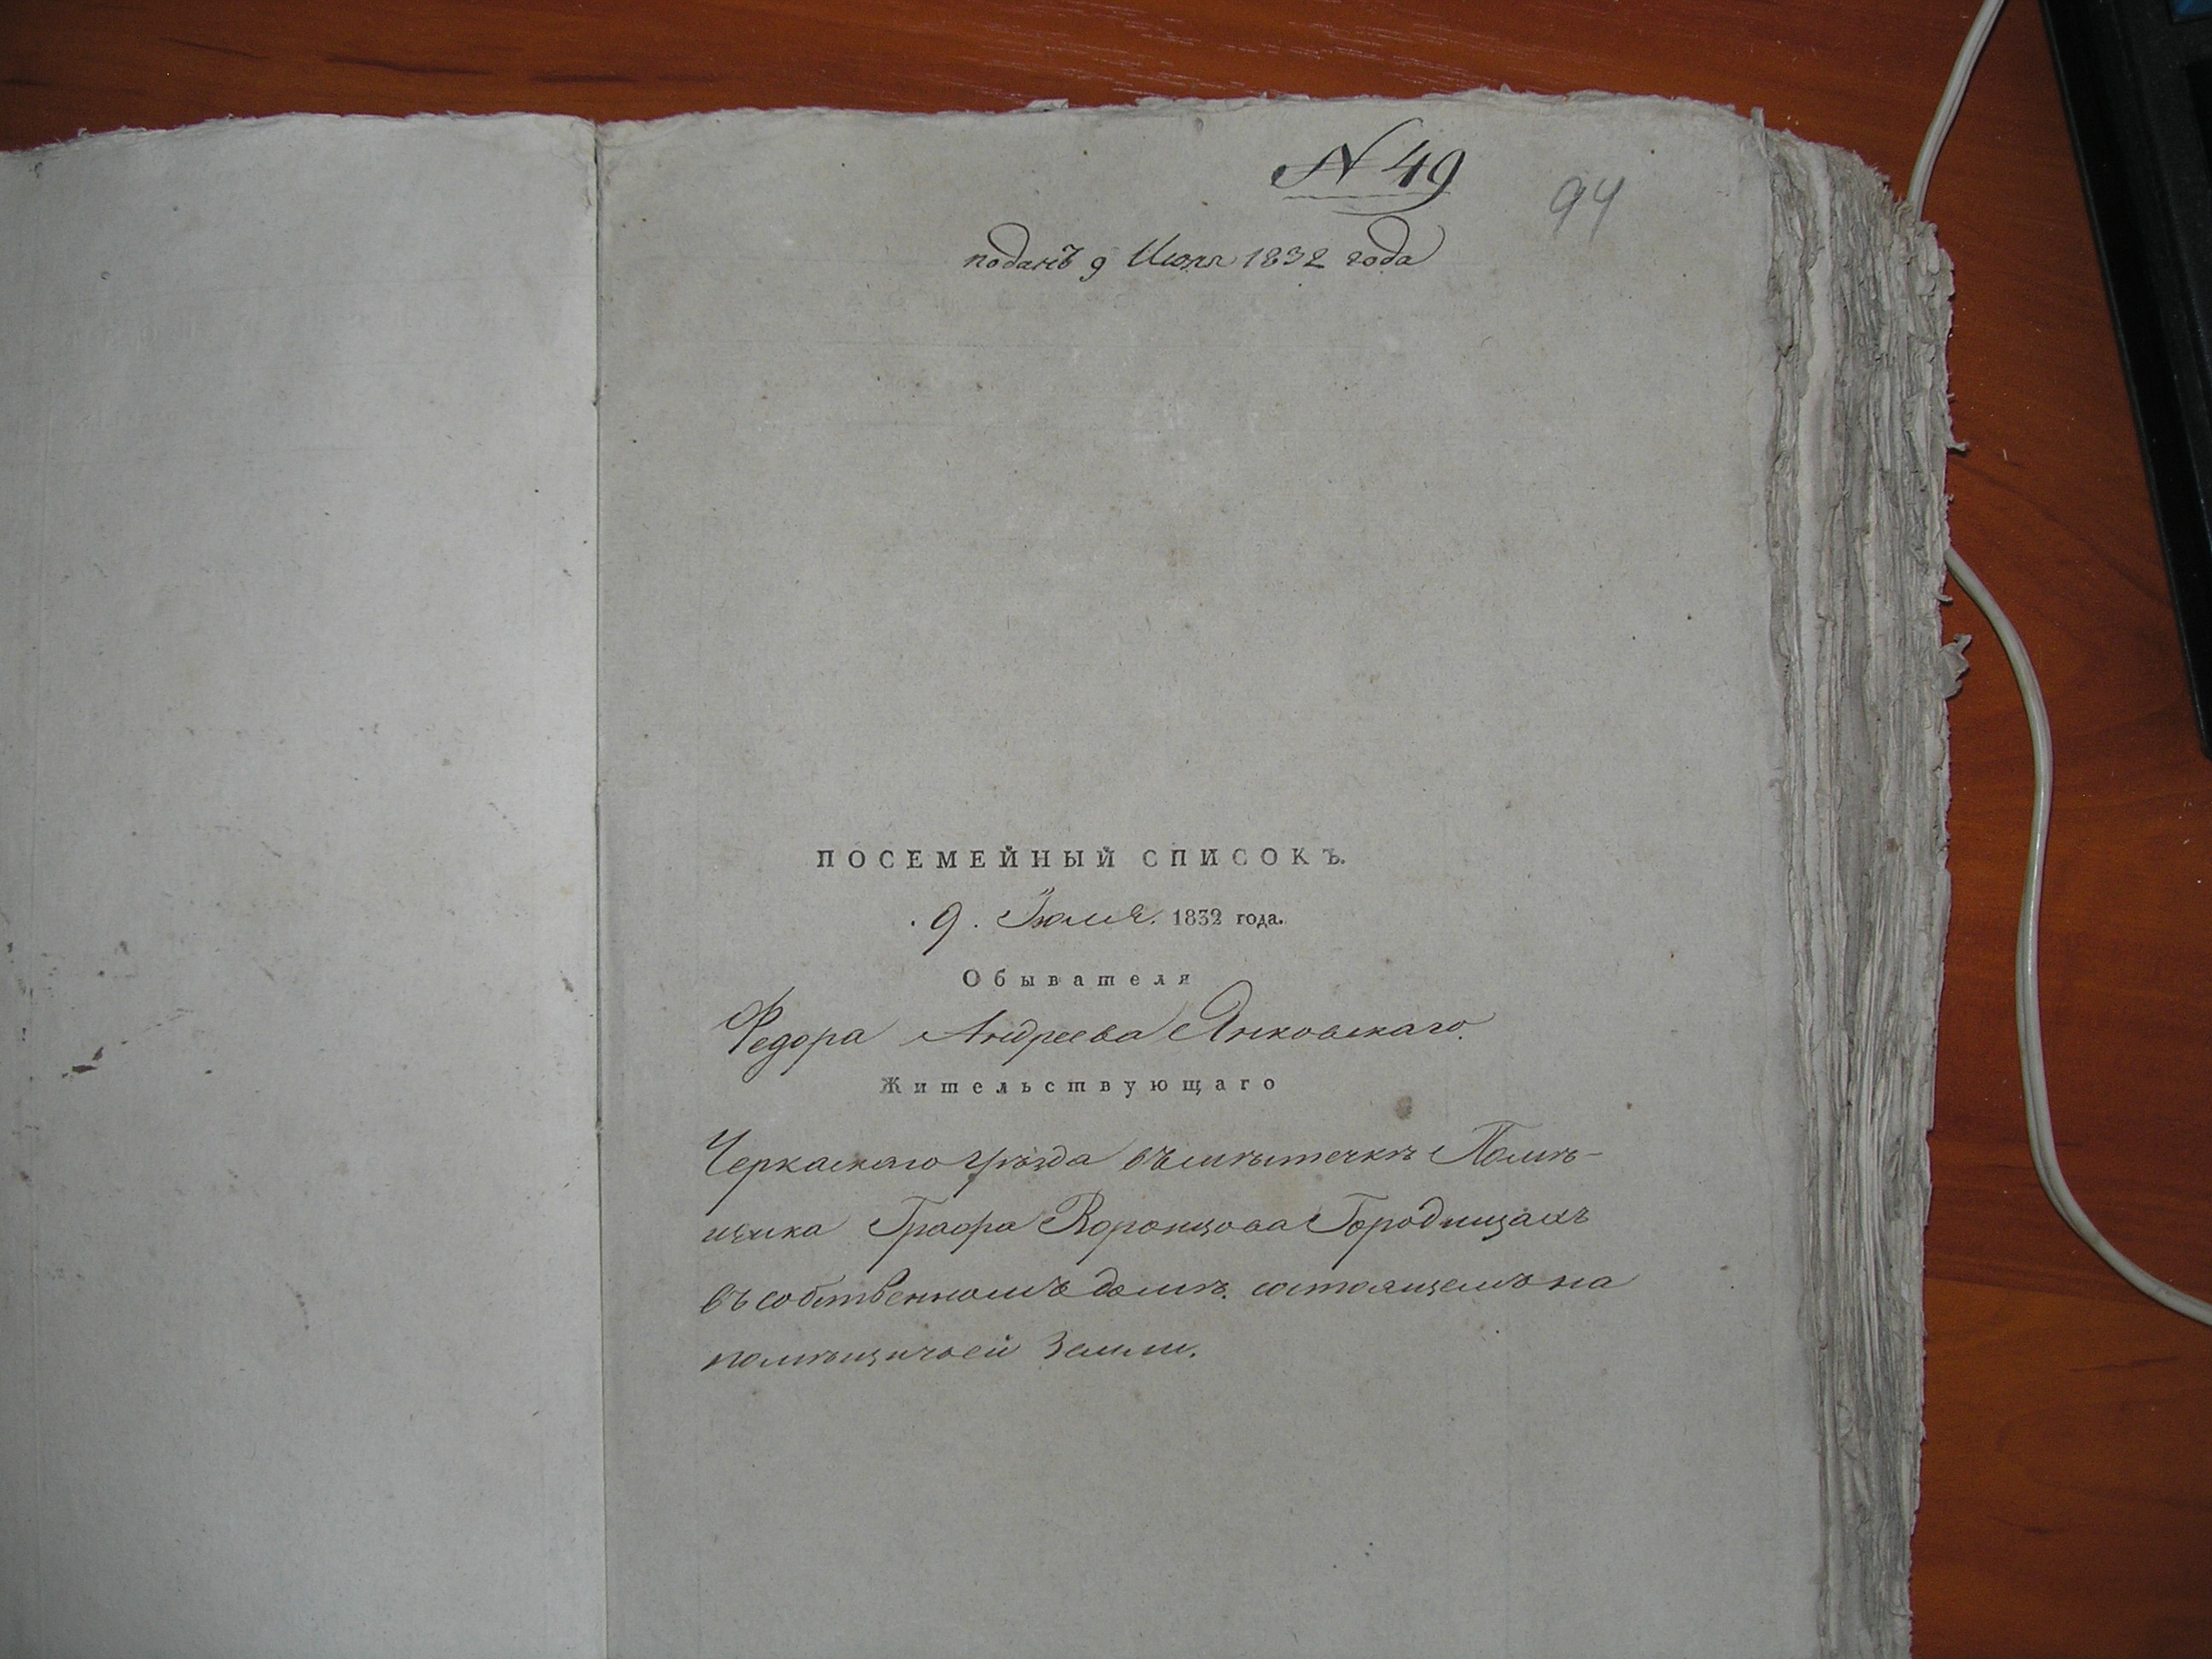 N 49
94
поданъ 9 Июля 1832 года
ПОСЕМЕЙНЫЙ СПИСОКЪ.
9. Іюля. 1832 года.
Обывателя
Федора Андреева Янковскаго.
Жительствующаго
Черкаскаго уѣзда въ мѣстечкѣ Помѣ-
щика Графа Воронцова Городищахъ
въ собственномъ домѣ. состоящемъ на
помѣщичьей земли.